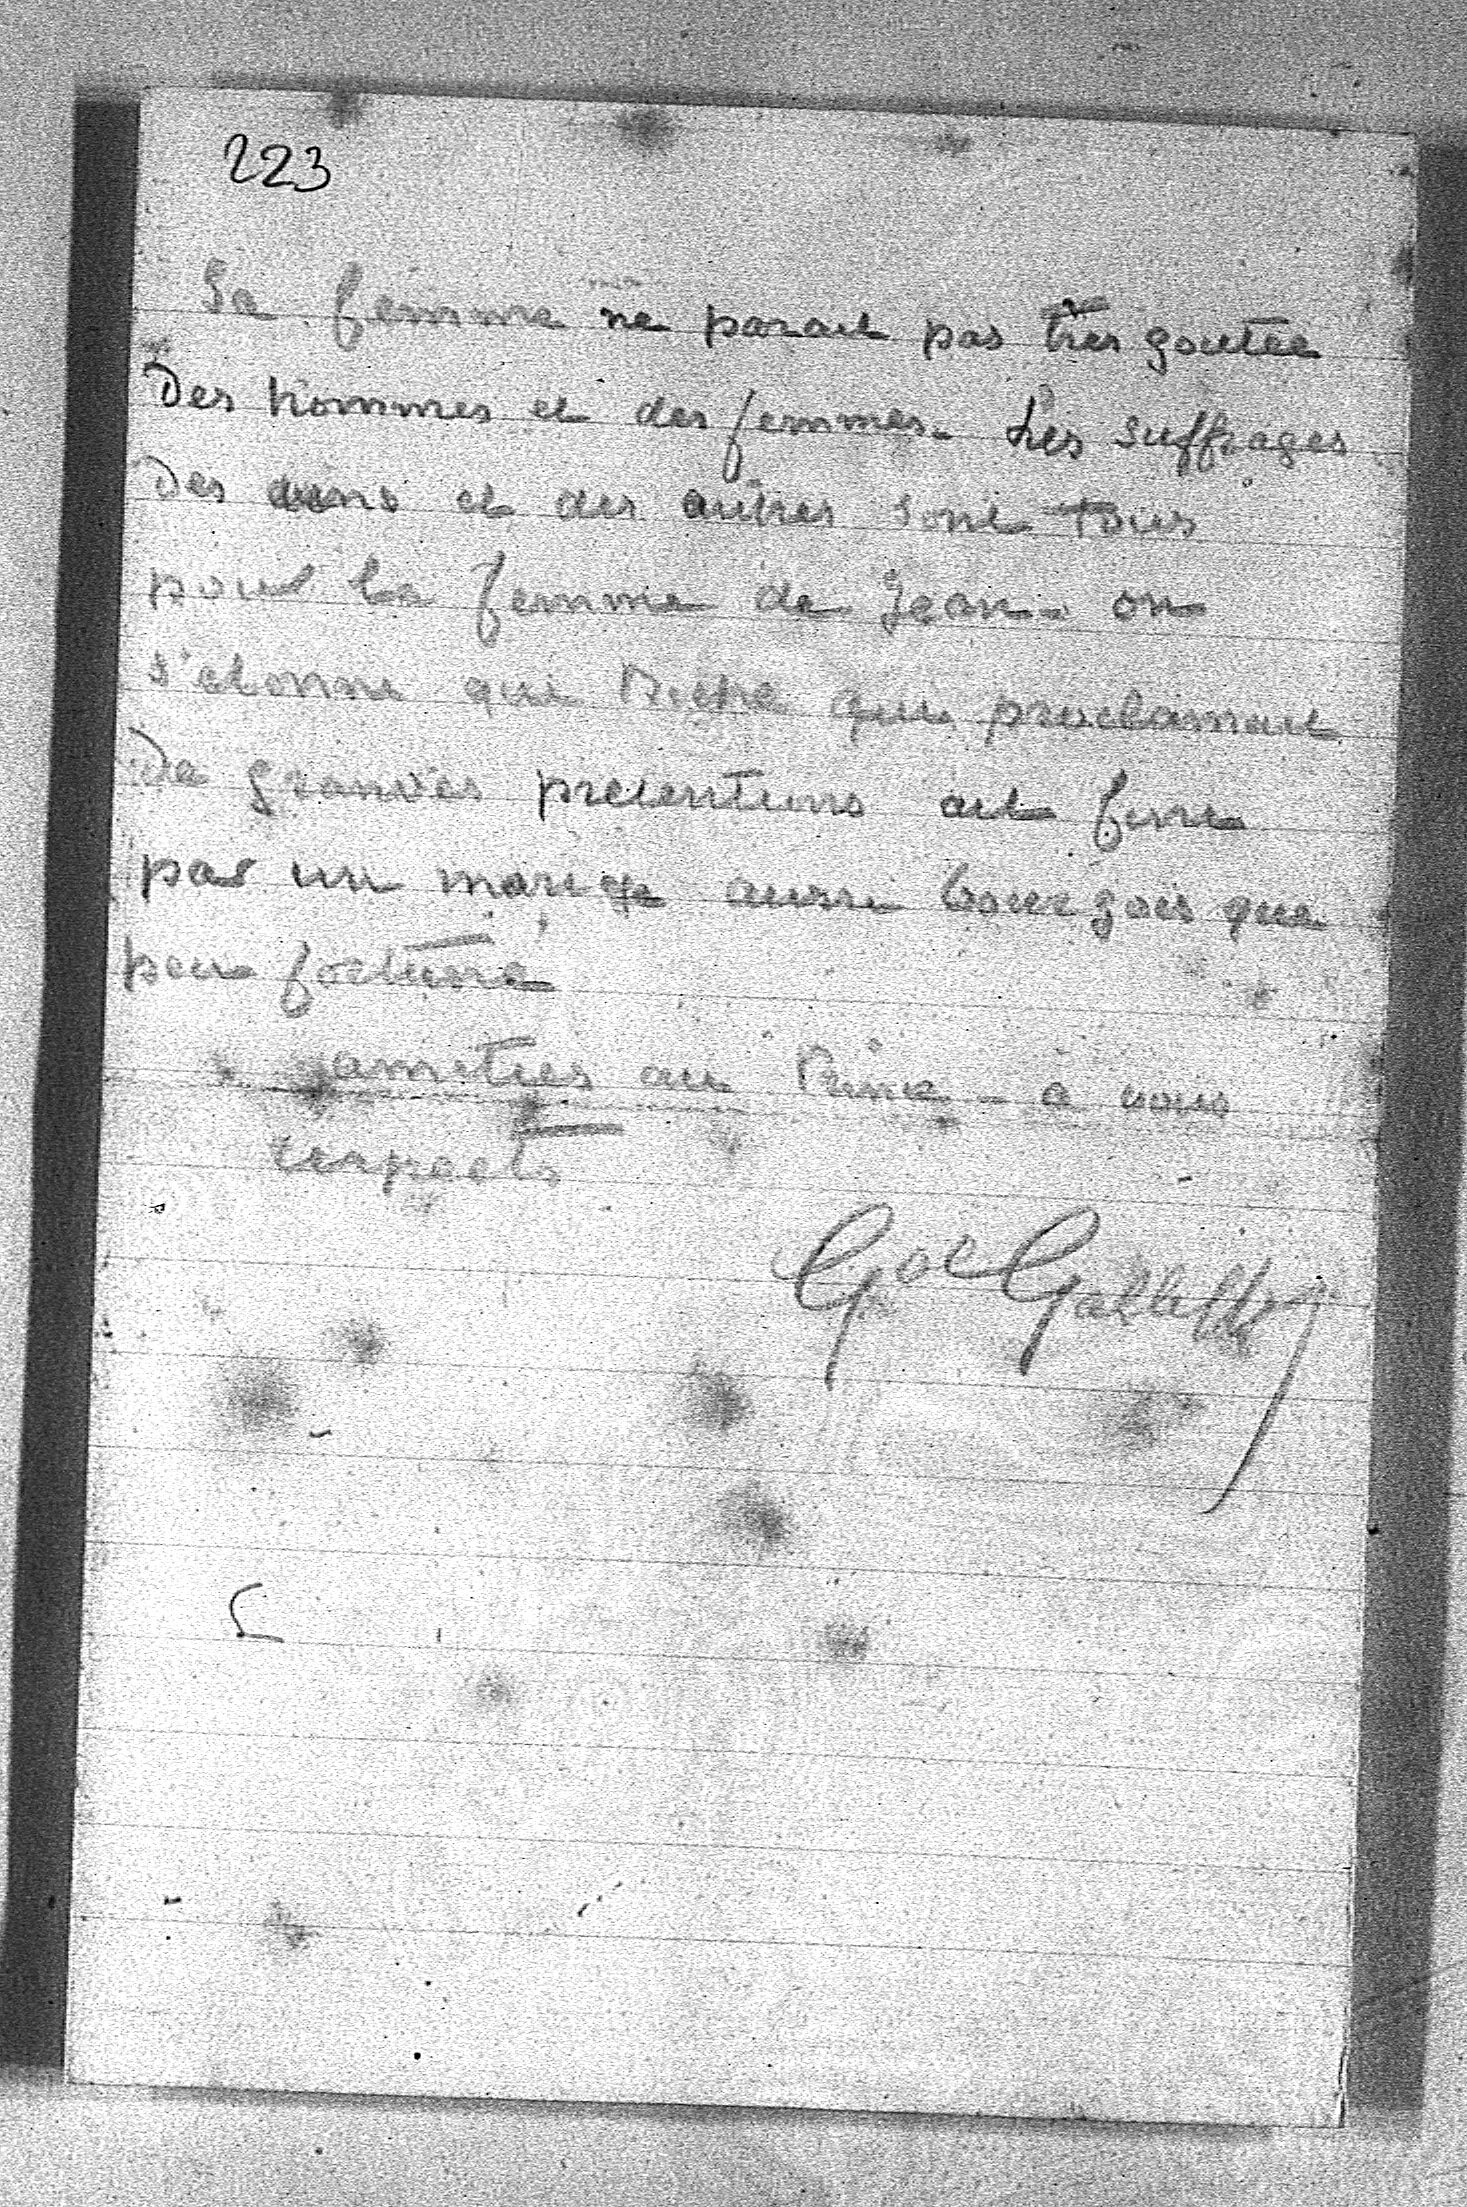 223
Sa femme ne parait pas très goutée
Des hommes et des femmes. Les suffrages
Des uns et des autres sont tous
pour la femme de Jean. on
s'etonne que qui proclamait
De grandes pretentions ait fini
par un mariage aussi bourgois que
peu fortuné
amitiés au Prince - à vous
respects